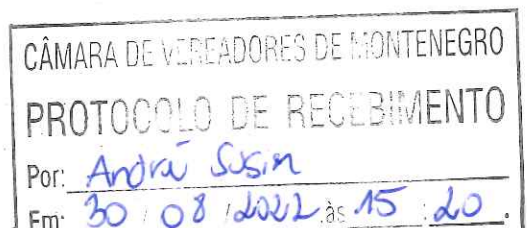 CÂMARA DE VEREADORES DE MONTENEGRO
PROTOCOLO DE RECEBIMENTO
Por: André Susin
Em: 30 / 08 / 2022 às 15 : 20.